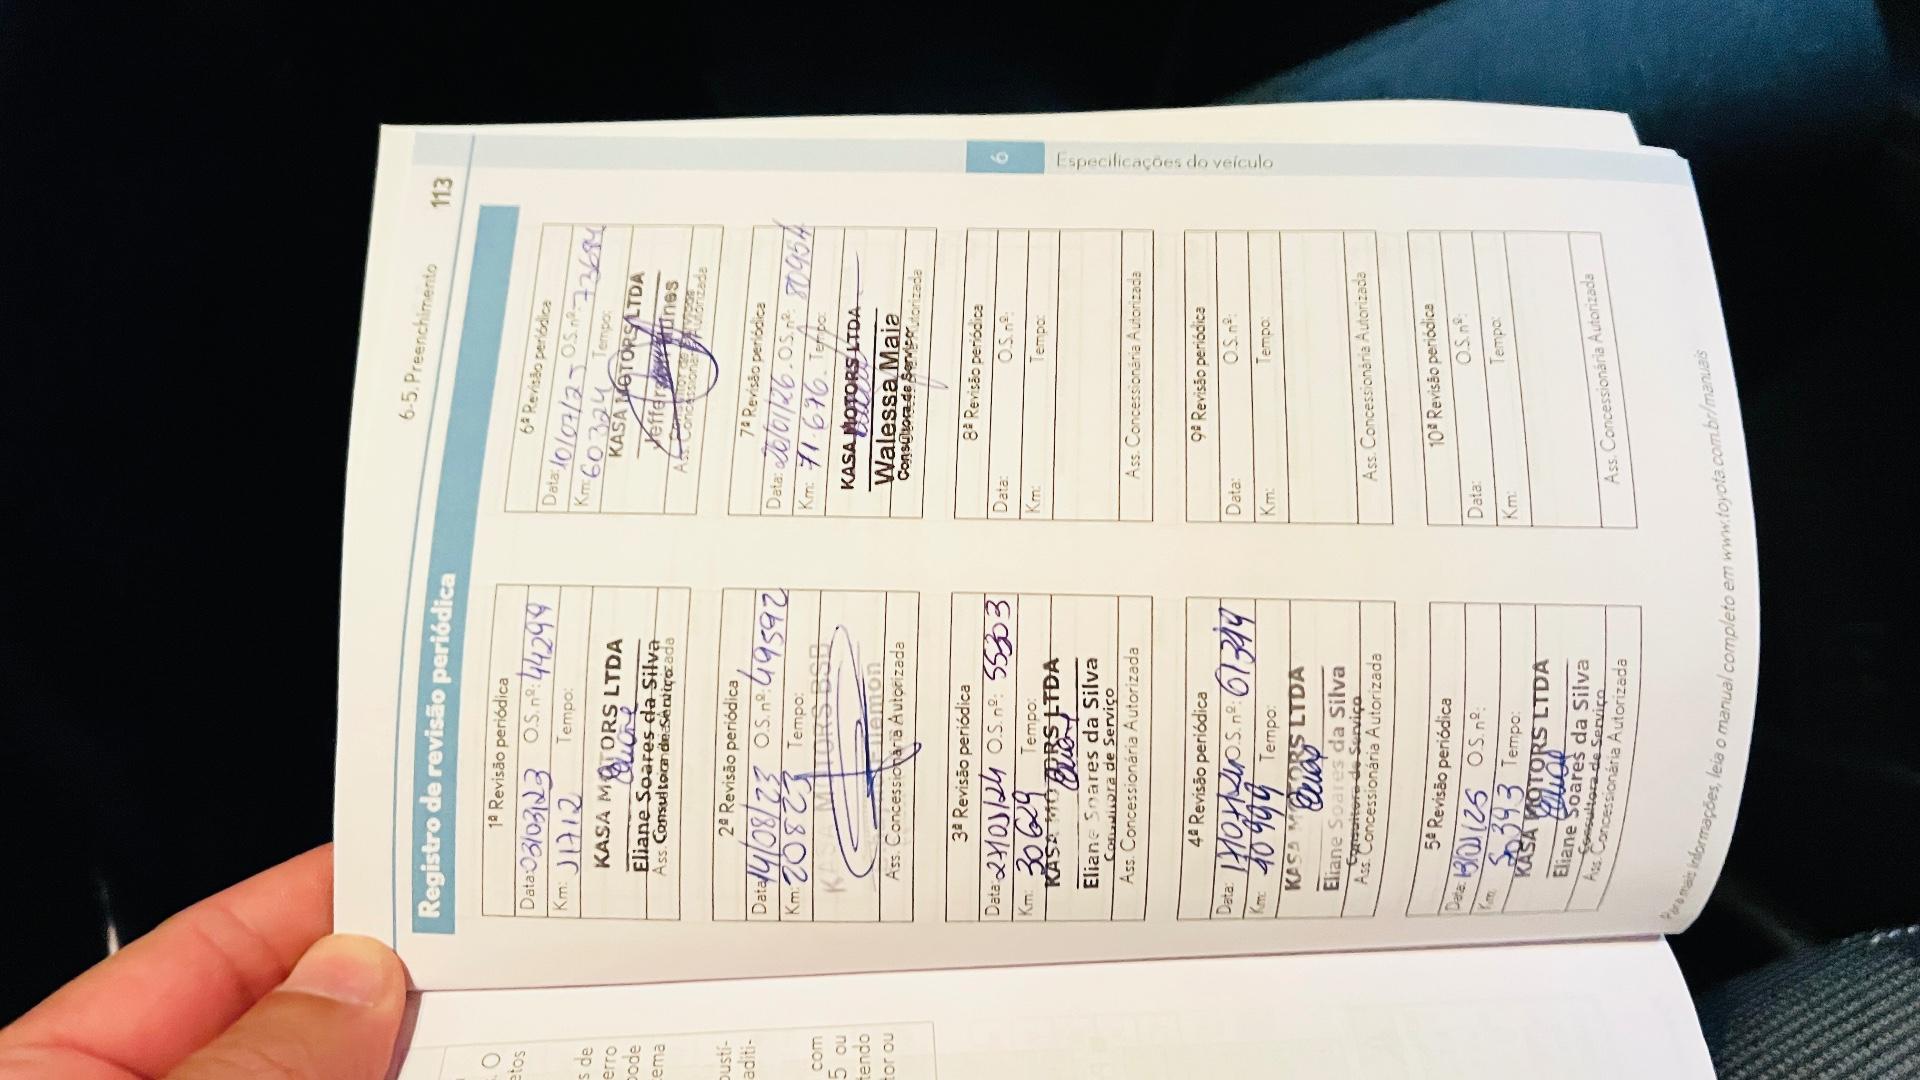 6-5. Preenchimento 113
Registro de revisão periódica
1ª Revisão periódica
Data: 03/03/23 O.S. nº: 44299
Km: 11712 Tempo:
KASA MOTORS LTDA
Eliane Soares da Silva
Consultora de Serviço
Ass. Concessionária Autorizada
2ª Revisão periódica
Data: 14/08/23 O.S. nº: 49592
Km: 20823 Tempo:
KASA MOTORS BSB
Ass. Concessionária Autorizada
3ª Revisão periódica
Data: O.S. nº: 55303
Km: 30629 Tempo:
KASA MOTORS LTDA
Eliane Soares da Silva
Consultora de Serviço
Ass. Concessionária Autorizada
4ª Revisão periódica
Data: O.S. nº:
Km: 40999 Tempo:
KASA MOTORS LTDA
Eliane Soares da Silva
Consultora de Serviço
Ass. Concessionária Autorizada
5ª Revisão periódica
Data: 13/01/25 O.S. nº:
Km: 50393 Tempo:
KASA MOTORS LTDA
Eliane Soares da Silva
Consultora de Serviço
Ass. Concessionária Autorizada
6ª Revisão periódica
Data: 10/07/25 O.S. nº:
Km: Tempo:
KASA MOTORS LTDA
Ass. Concessionária Autorizada
7ª Revisão periódica
Data: 26/01/26 O.S. nº: 80954
Km: 71.676 Tempo:
KASA MOTORS LTDA
Walessa Maia
Consultora de Serviço
Autorizada
8ª Revisão periódica
Data: O.S. nº:
Km: Tempo:
Ass. Concessionária Autorizada
9ª Revisão periódica
Data: O.S. nº:
Km: Tempo:
Ass. Concessionária Autorizada
10ª Revisão periódica
Data: O.S. nº:
Km: Tempo:
Ass. Concessionária Autorizada
6
Especificações do veículo
Para mais informações, leia o manual completo em www.toyota.com.br/manuais